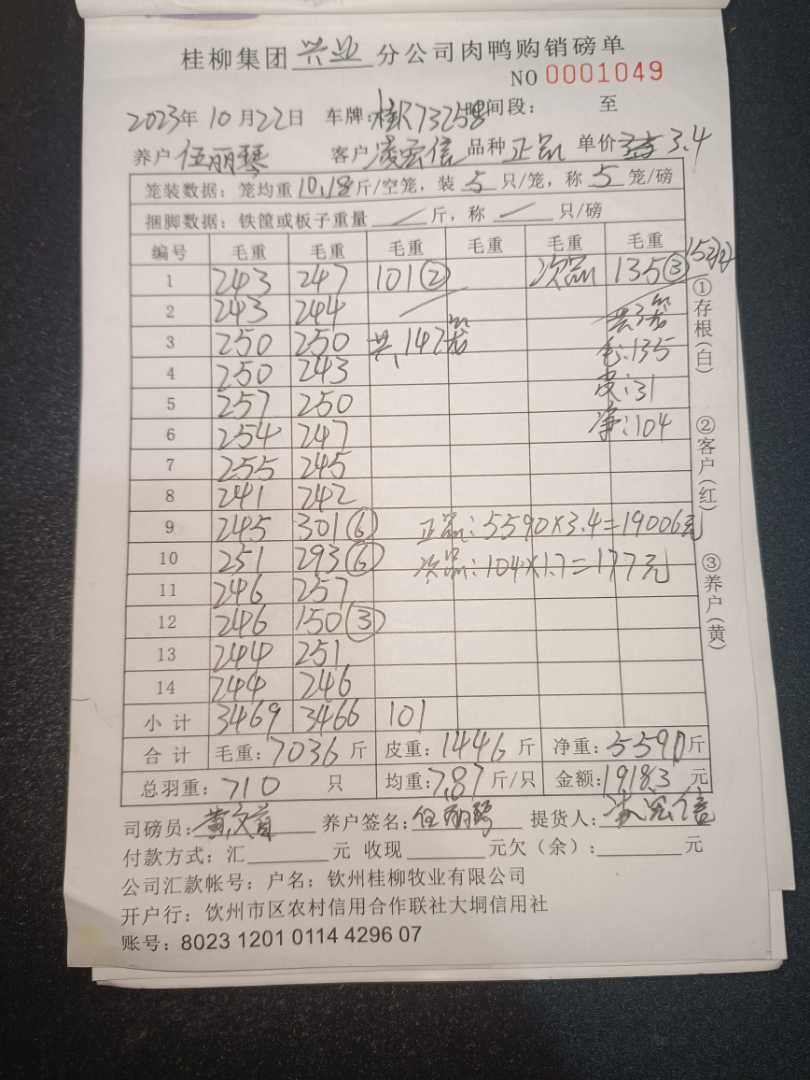 桂柳集团 兴业 分公司肉鸭购销磅单
NO 0001049
2023年 10月22日 车牌:桂R73258 时间段: 至
养户 伍丽琴 客户 凌宏信 品种 正品 单价 3.4
笼装数据: 笼均重 10.18 斤/空笼, 装 5 只/笼, 称 5 笼/磅
捆脚数据: 铁筐或板子重量 / 斤, 称 / 只/磅
编号 毛重 毛重 毛重 毛重 毛重 毛重
1 243 247 101② 次品 135③ 15只
2 243 244
共3笼
3 250 250 共142笼 毛:135
4 250 243 皮:31
5 257 250 净:104
6 254 247
7 255 245
8 241 242
9 245 301⑥ 正品:5590×3.4=19006元
10 251 293⑥ 次品:104×1.7=177元
11 246 257
12 246 150③
13 244 251
14 244 246
小计 3469 3466 101
合计 毛重: 7036 斤 皮重: 1446 斤 净重: 5590 斤
总羽重: 710 只 均重: 7.87 斤/只 金额: 19183 元
①存根(白)
②客户(红)
③养户(黄)
司磅员: 养户签名: 伍丽琴 提货人: 凌宏信
付款方式: 汇 元 收现 元欠(余): 元
公司汇款帐号: 户名: 钦州桂柳牧业有限公司
开户行: 钦州市区农村信用合作联社大垌信用社
账号: 8023 1201 0114 4296 07